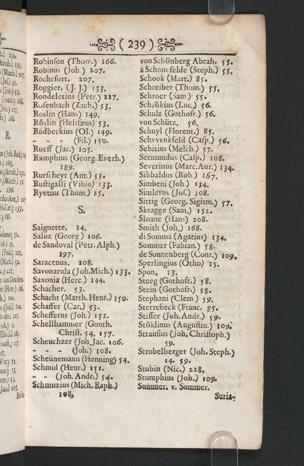 (239)
Robinson (Thom.) 166.
Robinus (Joh.) 207.
Rochefort. 207.
Roggier. (J. J.) 133.
Rondeletius (Petr.) 227.
Rosenbach (Zach.) 53.
Roslin (Hans) 149.
Röslin (Helisæus) 53.
Rudbeckius (Ol.) 149.
- - (Fil.) 150.
Rueff (Jac.) 105.
Rumphius (Georg. Everh.)
189.
Rurscheyt (Aut.) 53.
Rustigalli (Vibio) 133.
Ryetius (Thom.) 25.
S.
Saignette. 14.
Saluz (Georg) 106.
de Sandoval (Petr. Alph.)
197.
Saracenus. 208.
Savonarola (Joh. Mich.) 133.
Saxonia (Herc.) 144.
Schacher. 53.
Schacht (Matth. Henr.) 150.
Schaffer (Car.) 53.
Schefferus (Joh.) 151.
Schellhammer (Gunth.
Christ. 54. 157.
Scheuchzer (Joh. Jac. 106.
- - (Joh.) 108.
Scheünemann (Henning) 54.
Schmid (Henr.) 151.
- - (Joh. Andr.) 54.
Schmuzius (Mich. Raph.)
108.
von Schönberg Abrah. 55.
à Schoncfelde (Steph.) 55.
Schook (Mart.) 85.
Schreiber (Thom.) 55.
Schroer (Sam) 55.
Schulz (Gothofr.) 56.
von Schütz. 56.
Schuyl (Florent.) 85.
Schvvenkfeld (Casp.) 56.
Sebitius (Melch.) 57.
Severinus (Marc. Aur.) 134.
Sibbaldus (Rob.) 167.
Simbeni (Joh.) 134.
Simlerus (Jos.) 108.
Sittig (Georg. Sigism.) 57.
Skragge (Sam.) 152.
Sloane (Hans) 208.
Smith (Joh.) 168.
di Somma (Agatius) 134.
Sommer (Fabian.) 58.
de Sonnenberg (Conr.) 109.
Sperlingius (Otho) 15.
Spon. 13.
Steeg (Gothofr.) 58.
Stein (Gothofr.) 58.
Stephani (Clem) 59.
Sterrebeck (Franc. 85.
Stisser (Joh. Andr.) 59.
Stöklinus (Augustin.) 109.
Straussius (Joh. Christoph.)
59.
Strobelberger (Joh. Steph.)
14. 59.
Stubin (Nic.) 228.
Stumphius (Joh.) 109.
Summer. v. Sommer.
Suria-